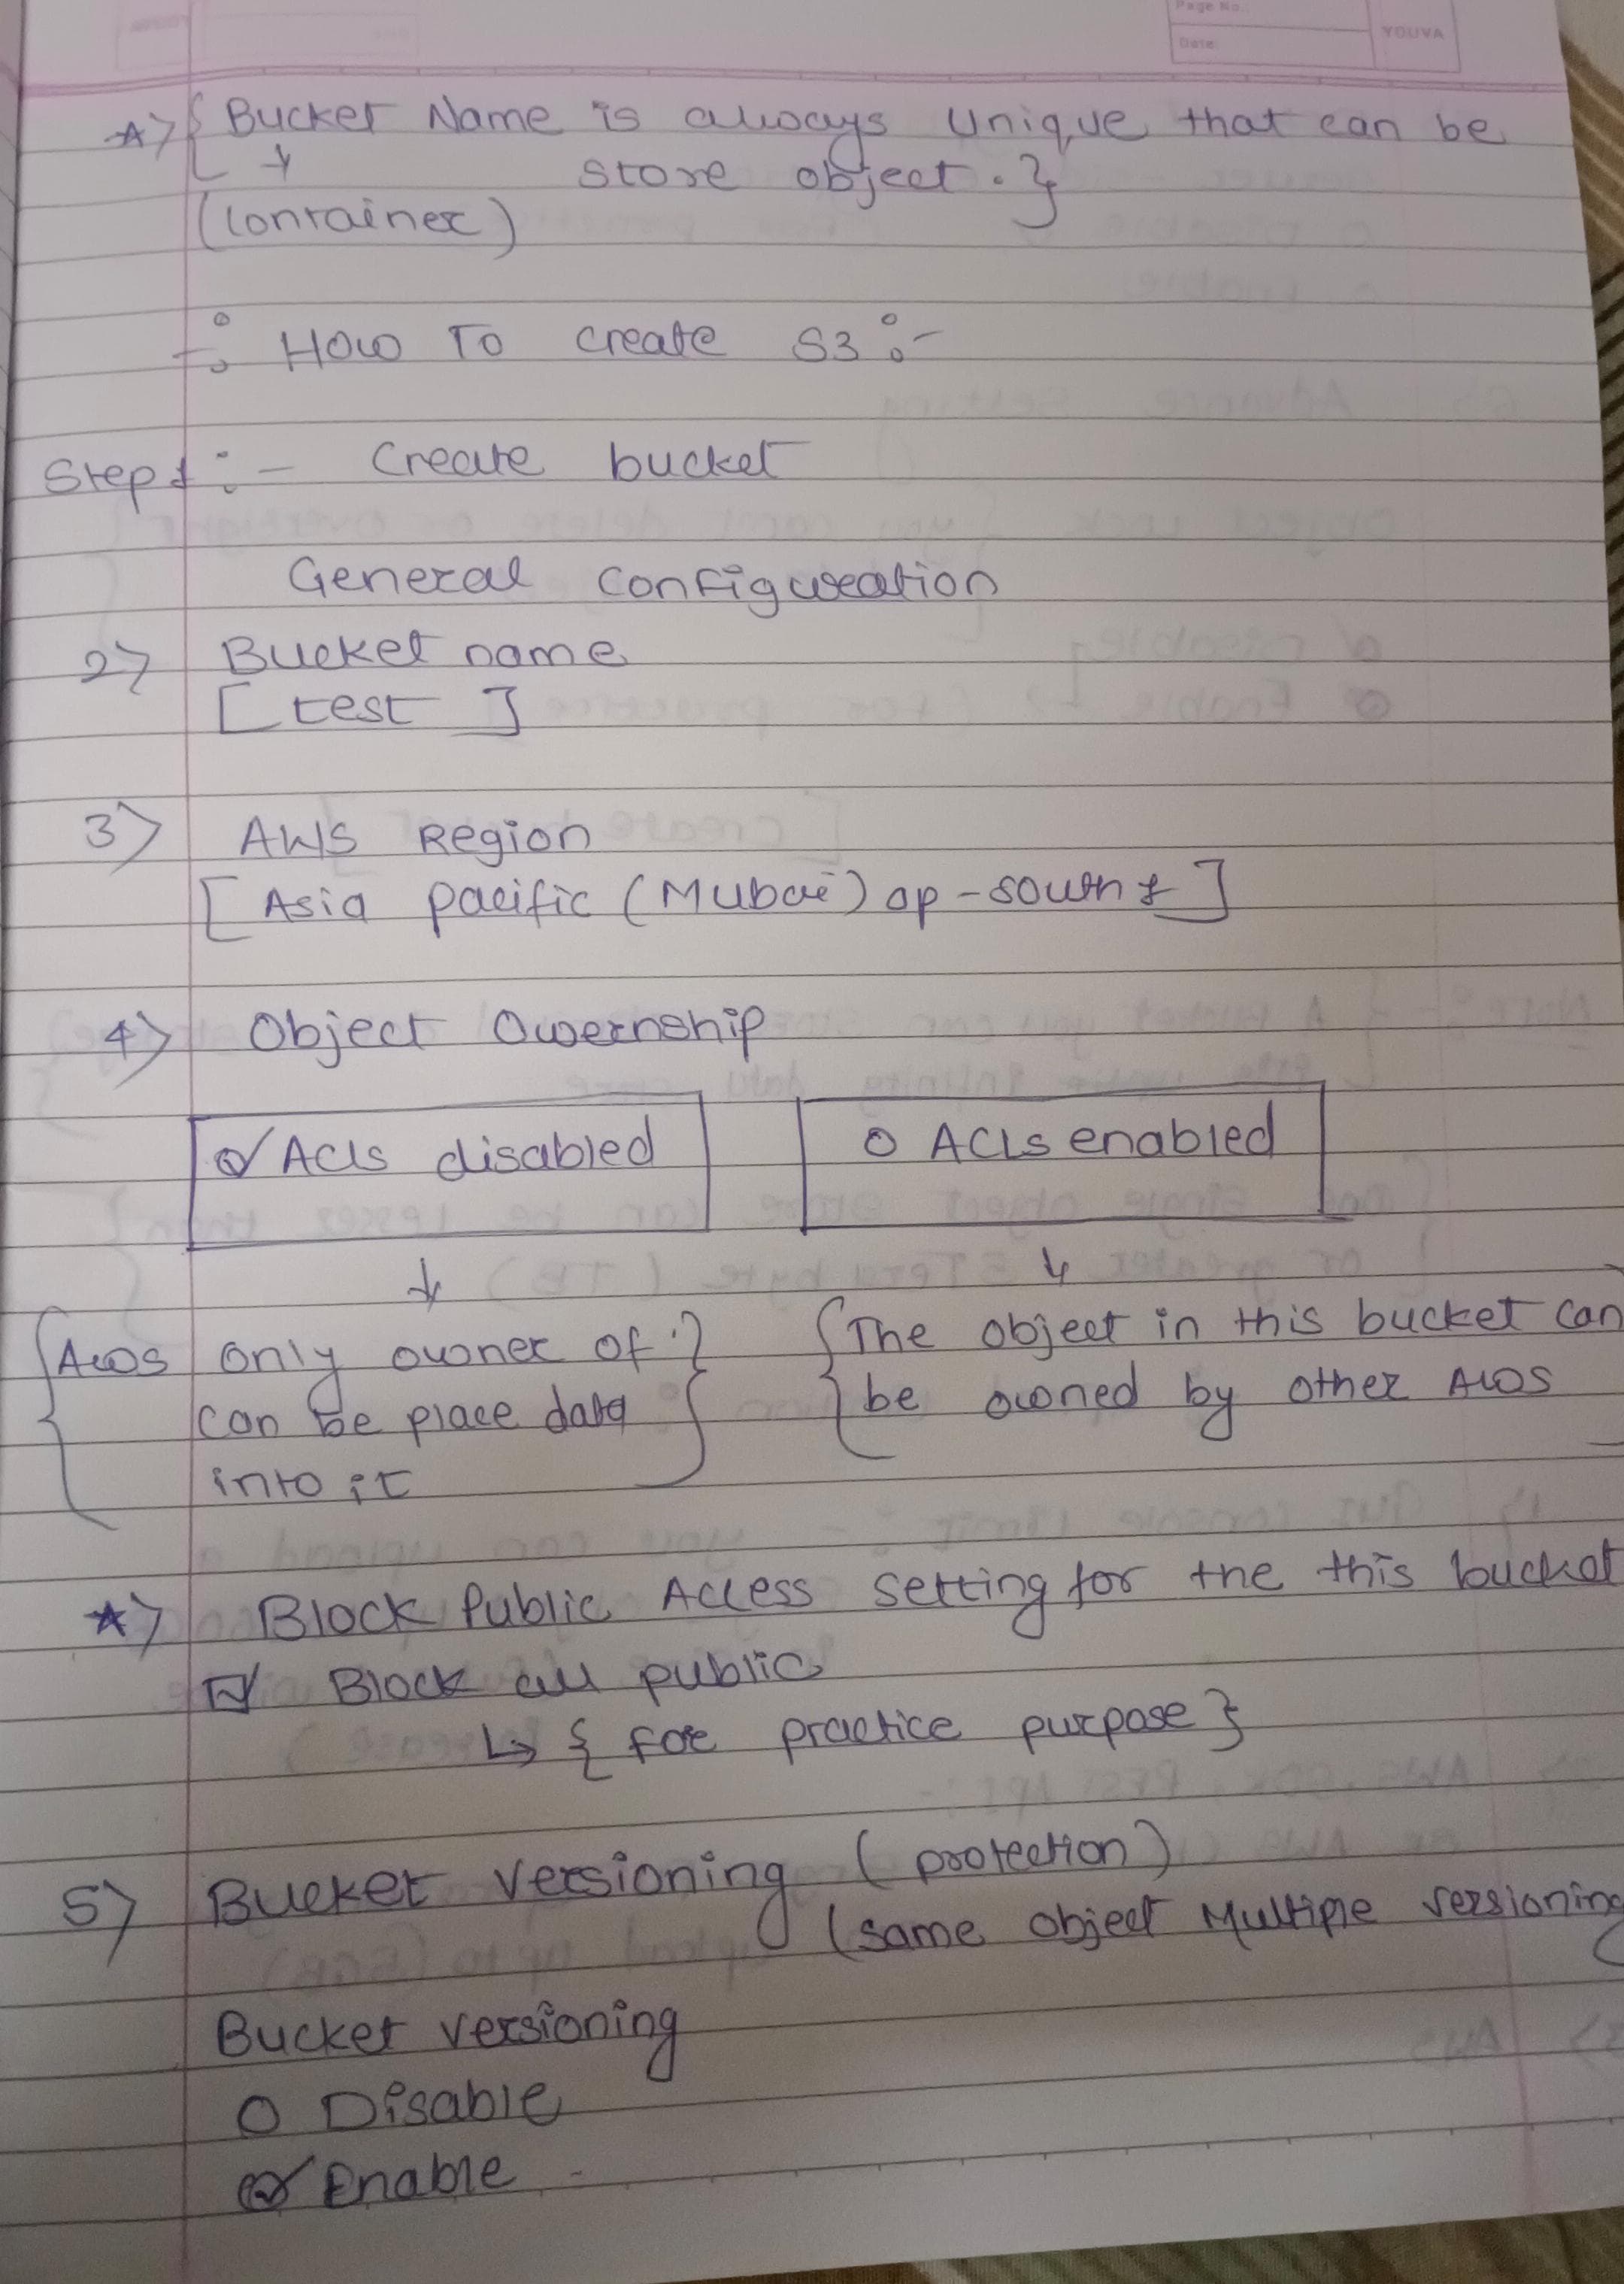 Page No.
Date:
YOUVA
☆> { Bucket Name is always Unique that can be
↓ store object. }
(Container)
-: How To create S3 :-
Step 1 :- Create bucket
General Configuration
2> Bucket name
[ test ]
3> AWS Region
[ Asia pacific (Mubai) ap-south 1 ]
4> Object Owernship
ACLs disabled
O ACLs enabled
↓
{ AWS only owner of }
can be place data
into it
↓
{ The object in this bucket can
be owned by other AWS
☆> Block Public Access setting for the this bucket
☑ Block all public
↳ { for practice purpose }
5> Bucket versioning (protection)
(same object Multiple versioning
Bucket versioning
O Disable
Enable